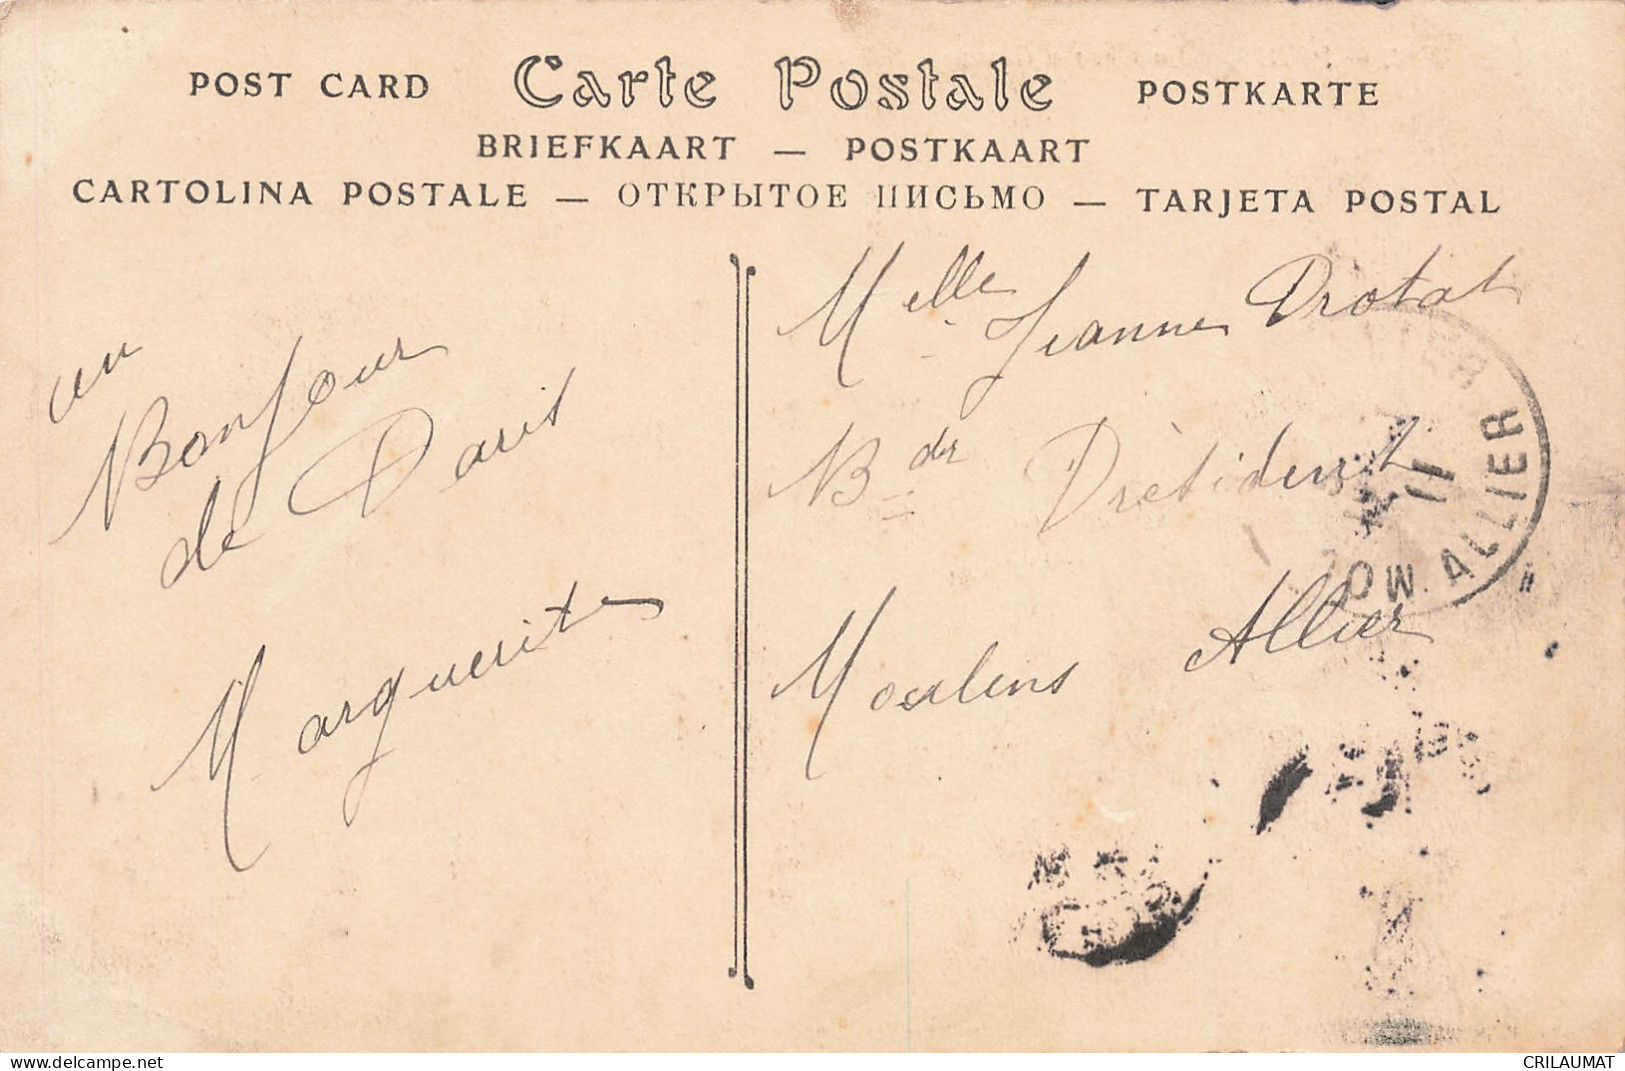 POST CARD Carte Postale POSTKARTE
BRIEFKAART — POSTKAART
CARTOLINA POSTALE — ОТКРЫТОЕ ПИСЬМО — TARJETA POSTAL
un
Bonjour
de Paris
Marguerite
Melle Jeanne Drotat
Bd
Moulins Allier
11
MO
ALLIER
www.delcampe.net
CRILAUMAT